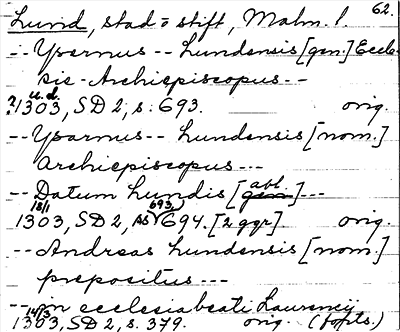 62.
Lund, stad o stift, Malm. l.
-- Ysarnus -- Lundensis [gen.] Eccle-
sie Archiepiscopus --
u.d.
?1303, SD 2, s. 693. orig.
-- Ysarnus -- Lundensis [nom.]
Archiepiscopus ---
abl.
-- Datum Lundis [gen] ---
18/1 693
1303, SD 2, s. 694. [2 ggr]. orig.
-- Andreas Lundensis [nom.]
prepositus ---
-- in ecclesia beati Laurencij
14/3
1303, SD 2, s. 379. orig.